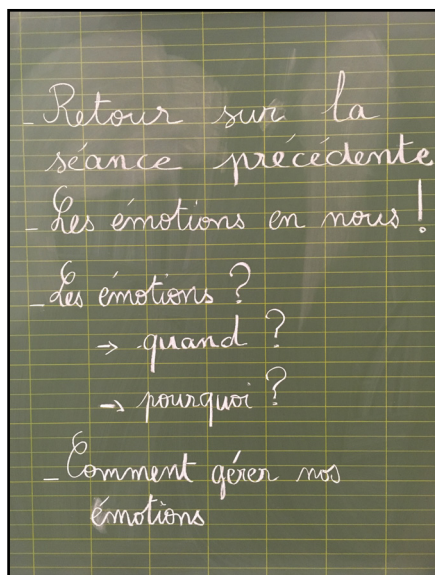 - Retour sur la
séance précédente
- Les émotions en nous !
- Les émotions ?
→ quand ?
→ pourquoi ?
- Comment gérer nos
émotions